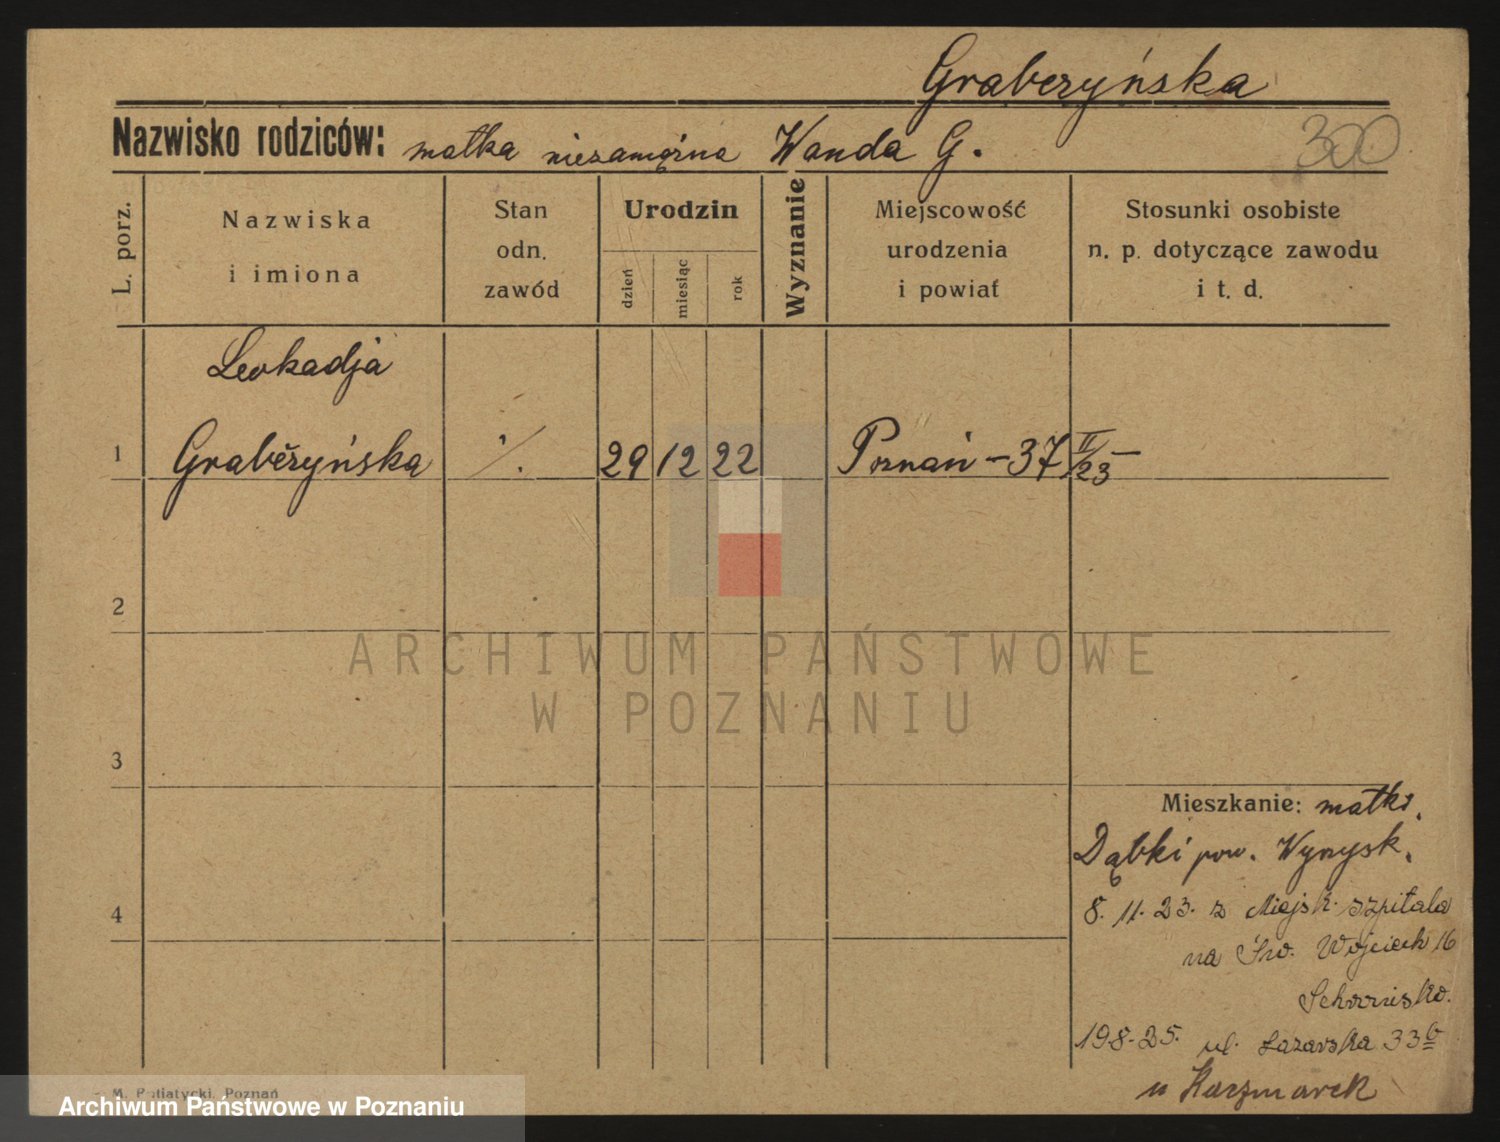 Graberzyńska
Nazwisko rodziców: matka niezamężna Wanda G.
300
L. porz.
Nazwiska
i imiona
Stan
odn.
zawód
Urodzin
dzień
miesiąc
rok
Wyznanie
Miejscowość
urodzenia
i powiat
Stosunki osobiste
n. p. dotyczące zawodu
i t. d.
Leokadja
1 Graberzyńska ·/. 29 12 22 Poznań - 37 II/23 -
2
ARCHIWUM PAŃSTWOWE
W POZNANIU
3
Mieszkanie: matki.
Dąbki pow. Wyrzysk.
4
8. 11. 23. z Miejsk. szpitala
na Św. Wojciech 16
Schronisko.
19 8. 25. ul. Łazarska 33b
u Kaczmarek
M. Putiatycki, Poznań
Archiwum Państwowe w Poznaniu